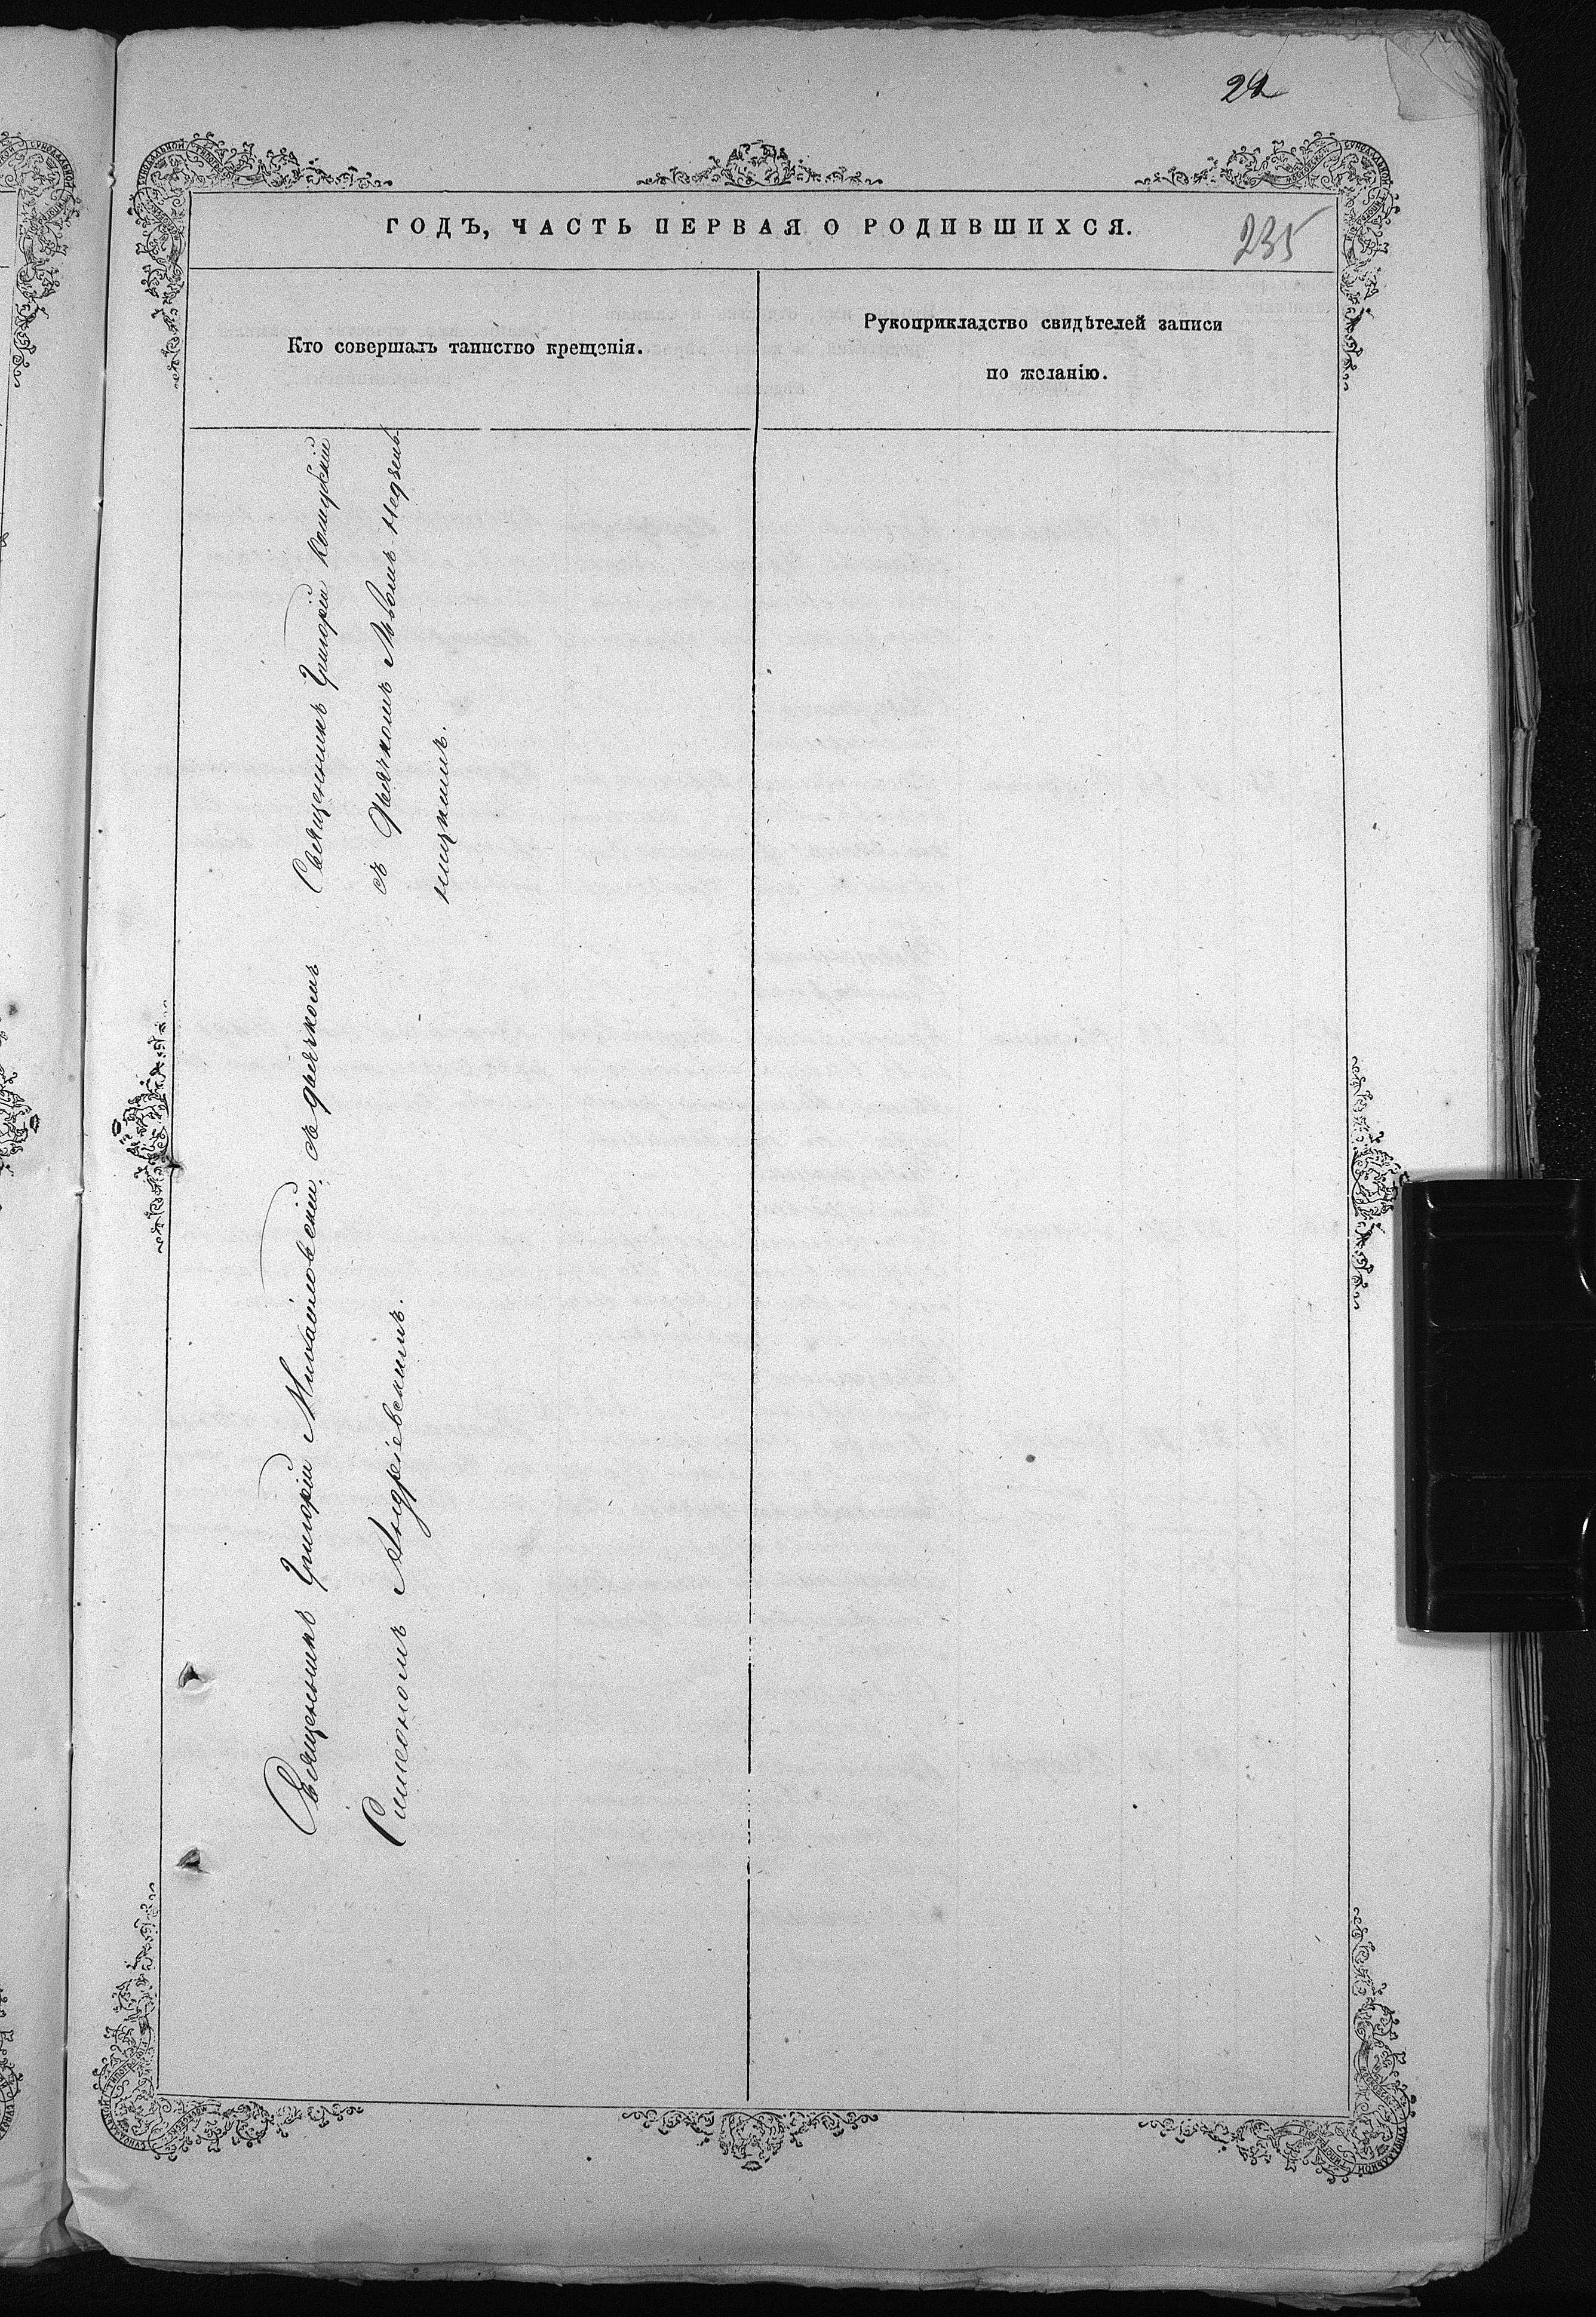 22
ГОДЪ, ЧАСТЬ ПЕРВАЯ О РОДИВШИХСЯ.
235
Кто совершалъ таинство крещенія.
Рукоприкладство свидѣтелей записи
по желанію.
Священникъ Григорій
съ Дьячкомъ Львомъ Недзель
ницкимъ.
Священникъ Григорій Михайловскій, съ дьячкомъ
Симеономъ Андріевскимъ.